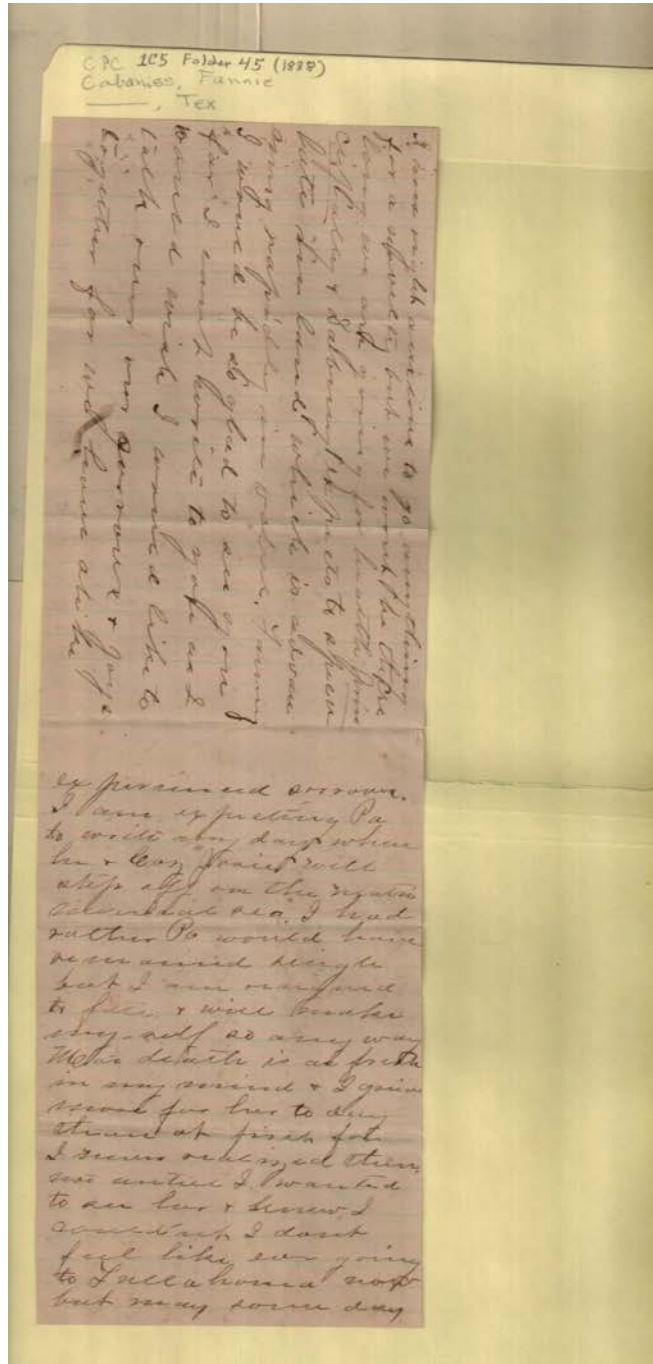 CPC 1C5 Folder 45 (1888)
Cabaniss, Fannie
, Tex
I am right anxious to go anything
for a novelty but we wont be there
long we are going for health prin
cipally & expects to specu
late in land which is advan
cing rapidly in value. Fanny
I would be so glad to see you
for I cant write to you as I
would wish I would like to
talk over our sorrows & joys
together for we have alike
experienced sorrow.
I am expecting Pa
to write any day when
he & Coz Josie will
step off on the matri
monial sea. I had
rather Pa would have
remained single
but I am resigned
to fate & will make
myself so any way
Ma's death is as fresh
in my mind & I grieve
more for her to day
than at first for
I never realized then,
not until I wanted
to see her & knew I
couldn't I dont
feel like ever going
to Tullahoma now
but may some day